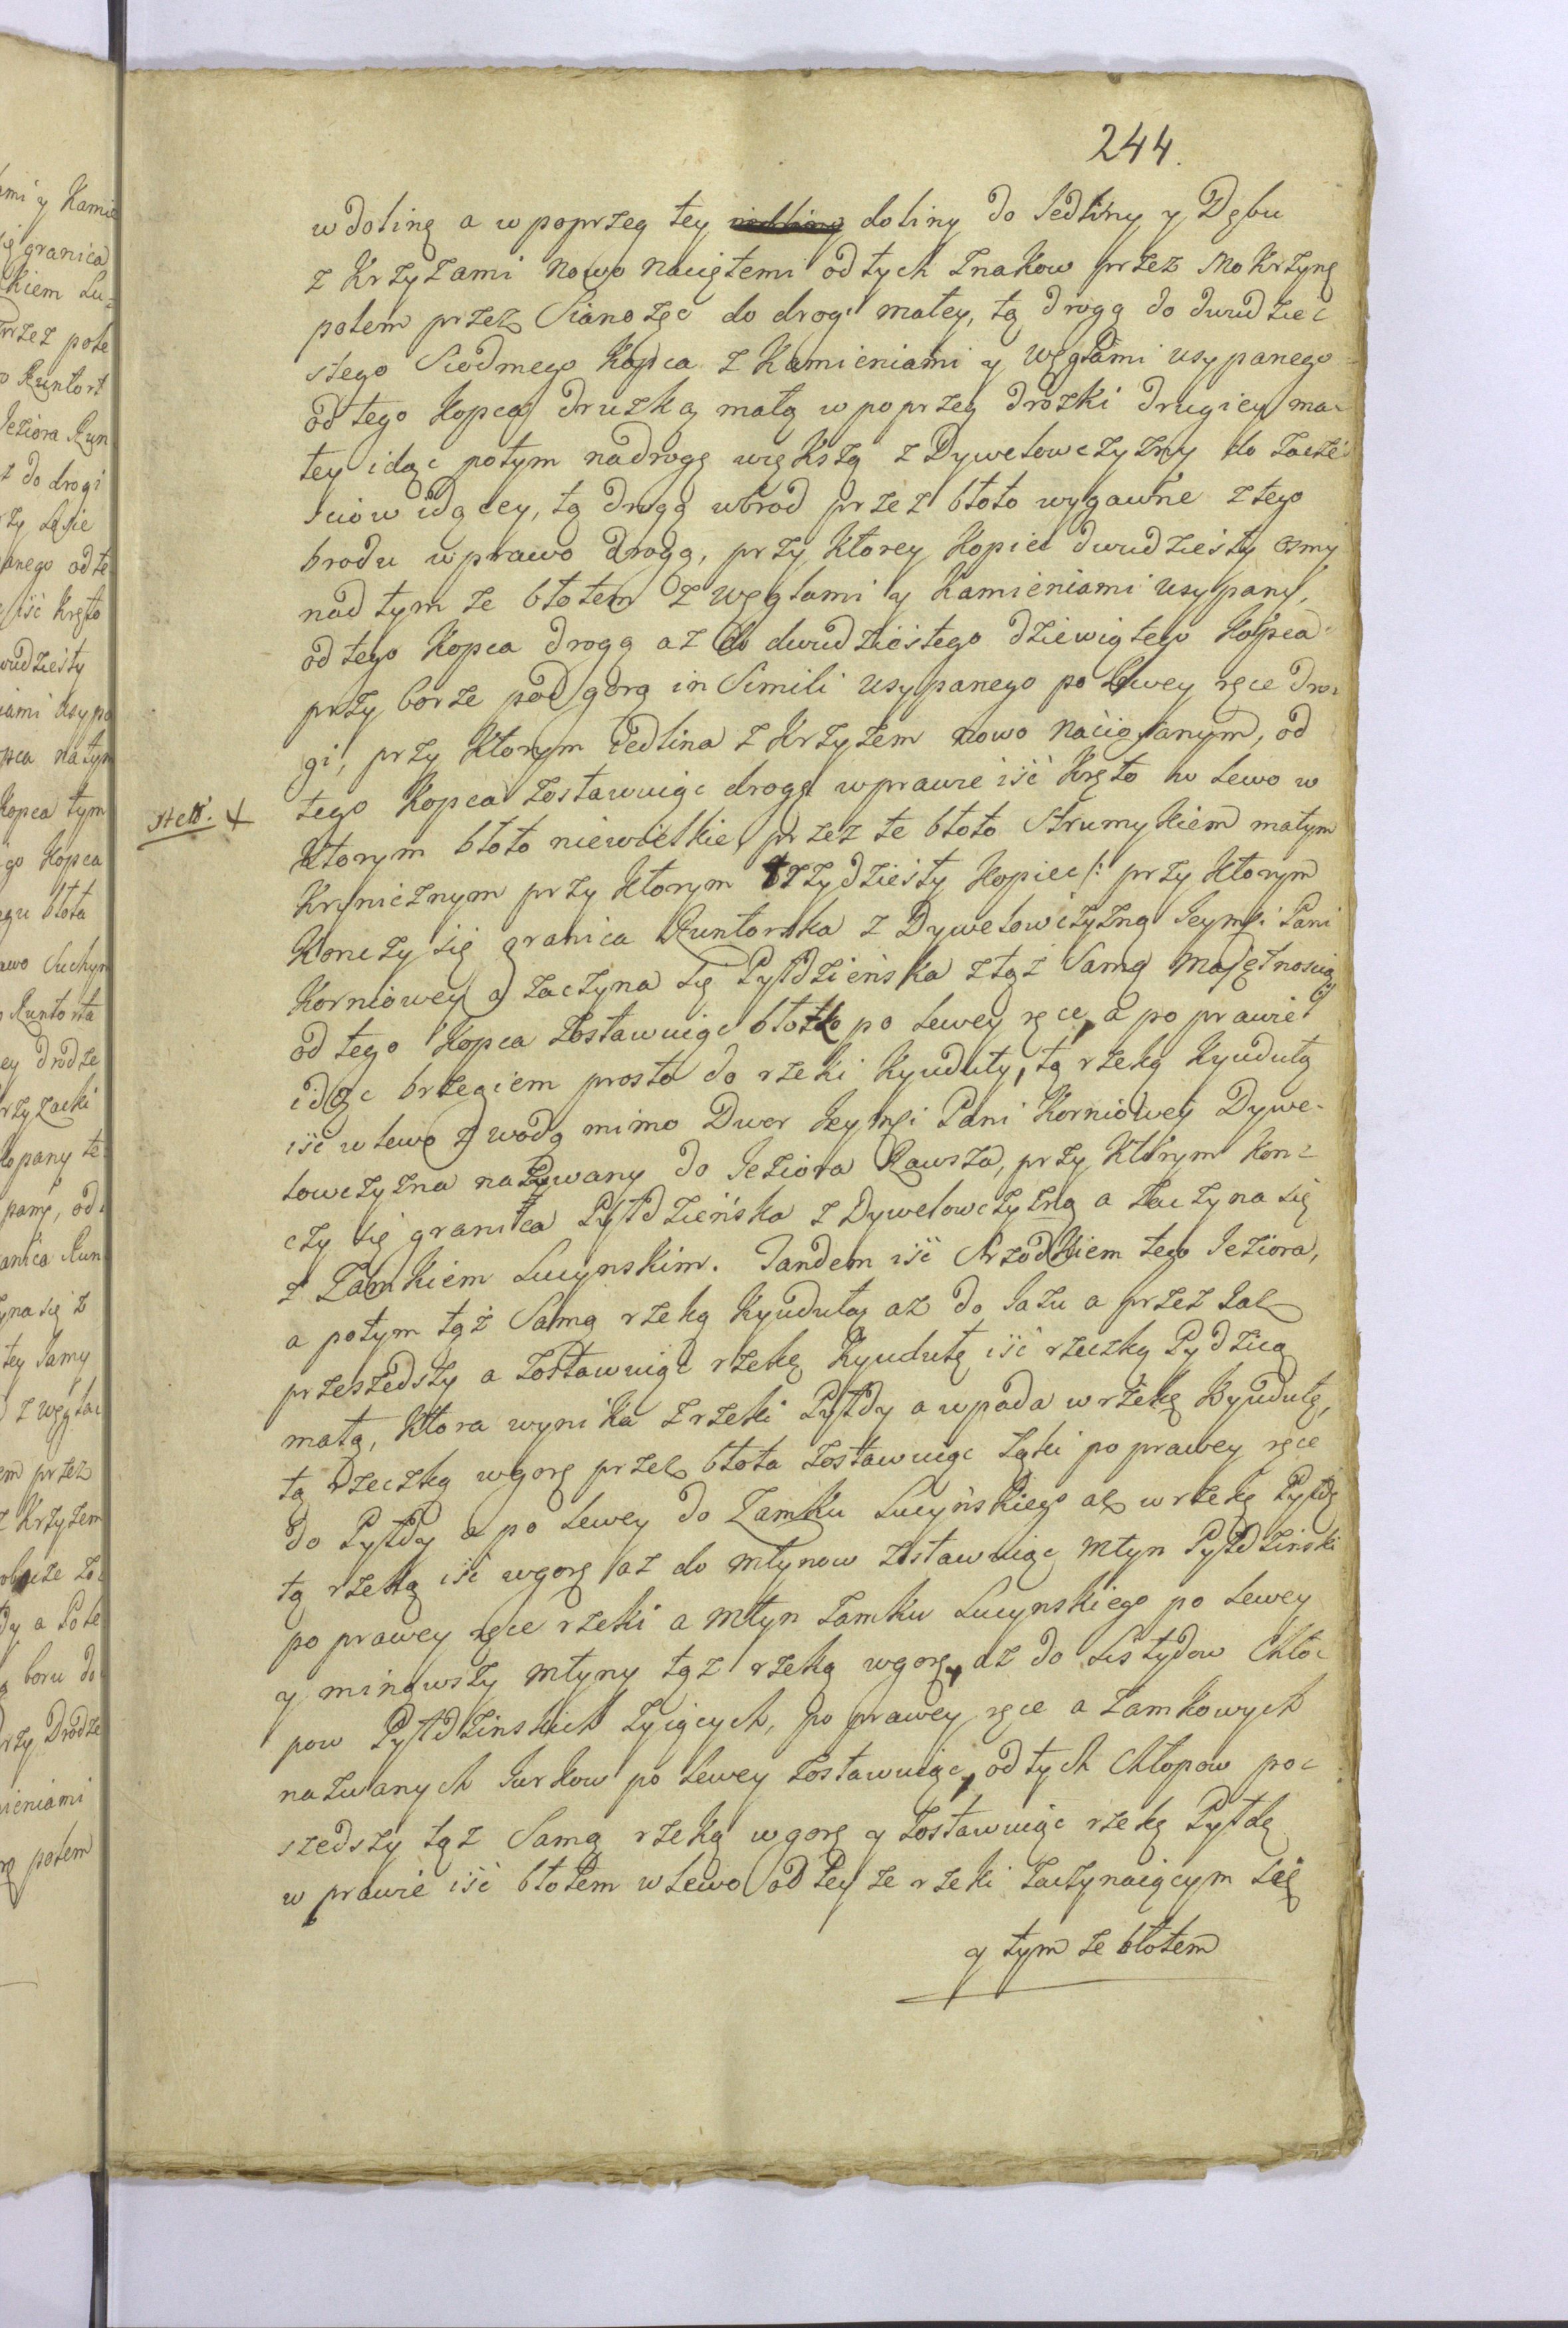 244.
w dolinę a w poprzeg tey doliny do Jedliny y Dębu
z Krzyżami nowo naciętemi od tych znakow przez Mokrzynę
potem przez Sianożęc do drogi małey, tą drogą do dwudziec
stego Siodmego Kopca z Kamieniami y węglami usypanego
od tego Kopca druzką małą w poprzeg drożki drugiey ma-
łey idąc potym na drogę większą z Dywelowczyzny do
idącey, tą drogą wbrod przez błoto wygawne z tego
brodu w prawo drogą, przy Ktorey Kopiec dwudziesty osmy
nad tym ze błotem z węglami y Kamieniami usypany,
od tego Kopca drogą az do dwudziestego dziewiątego Kopca
przy borze pod gorą in Simili usypanego po lewey ręce dro-
gi, przy Ktorym iedlina z Krzyżem nowo naciosanym, od
tego Kopca zostawuiąc drogę wprawie iść Kręto w lewo w
Ktorym błoto niewielkie, przez te błoto Strumykiem małym
Krynicznym przy Ktorym trzydziesty Kopiec /: przy Ktorym
Konczy się granica Runtorska z Dywelowczyzną Jeymści Pani
Korniowey a zaczyna się Pyłdzieńska z tąż Samą Majętnoscią
od tego Kopca zostawuiąc błotko po lewey ręce, a po prawie
idąc brzegiem prosto do rzeki Kyuduły, tą rzeką Kyudułą
iść w lewo z wodą mimo Dwor Jeymści Pani Korniowey Dywe-
lowczyzna nazywany do Jeziora Rawsza, przy Którym kon-
czy się granica Pyłdzieńska z Dywelowczyzną a zaczyna się
z Zamkiem Lucynskim. Tandem iść Srzodkiem tego Jeziora,
a potym tąż Samą rzeką Kyudułą az do Jazu a przez Jaz
przeszedszy a zostawuiąc rzekę Kyudułę iść rzeczką Pydzicą
małą, Ktora wynika z rzeki Pyłdy a wpada w rzekę Kyudułę,
tą rzeczką wgorę przez błota zostawuiąc Łąki po prawey ręce
do Pyłdy a po lewey do Zamku Lucyńskiego aż w rzekę Pyłdę
tą rzeką iść wgorę az do młynow zostawuiąc młyn Pyłdzinski
po prawey ręce rzeki a młyn Zamku Lucynskiego po lewey
y minąwszy młyny tąż rzeką wgorę, az do Chło-
pow Pyłdzinskich Zyiących, po prawey ręce a Zamkowych
nazwanych Jurkow po lewey zostawuiąc, od tych Chłopow po-
szedszy tąż Samą rzeką w gorę y zostawuiąc rzekę Pyłdę
w prawie iść błotem w lewo od tey ze rzeki zaczynaiącym się
y tym ze błotem